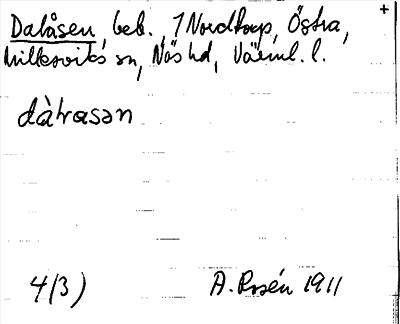 +
Dalåsen, beb., 1 Nordtorp, Östra,
Millesviks sn, Näs hd, Värml. l.
dàlrasən
4/3) A. Rosén 1911